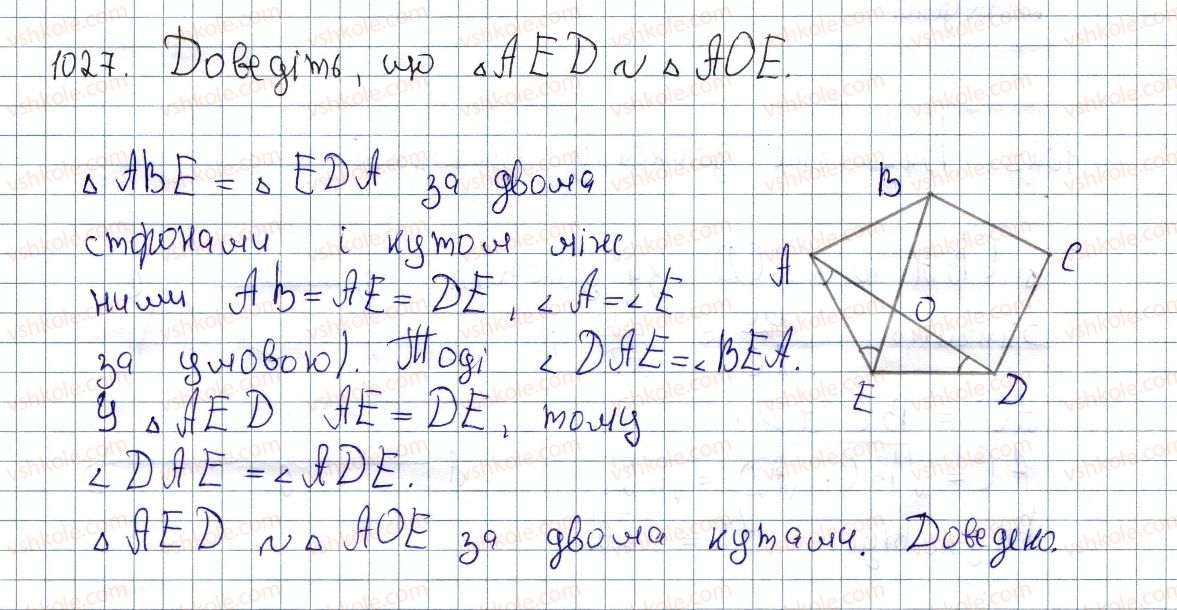 1027. Доведіть, що △AED ~ △AOE.
△ABE = △EDA за двома
сторонами і кутом між
ними AB = AE = DE, ∠A = ∠E
за умовою). Тоді ∠DAE = ∠BEA.
У △AED AE = DE, тому
∠DAE = ∠ADE.
△AED ~ △AOE за двома кутами. Доведено.
B
A
C
O
E
D
vshkole.com